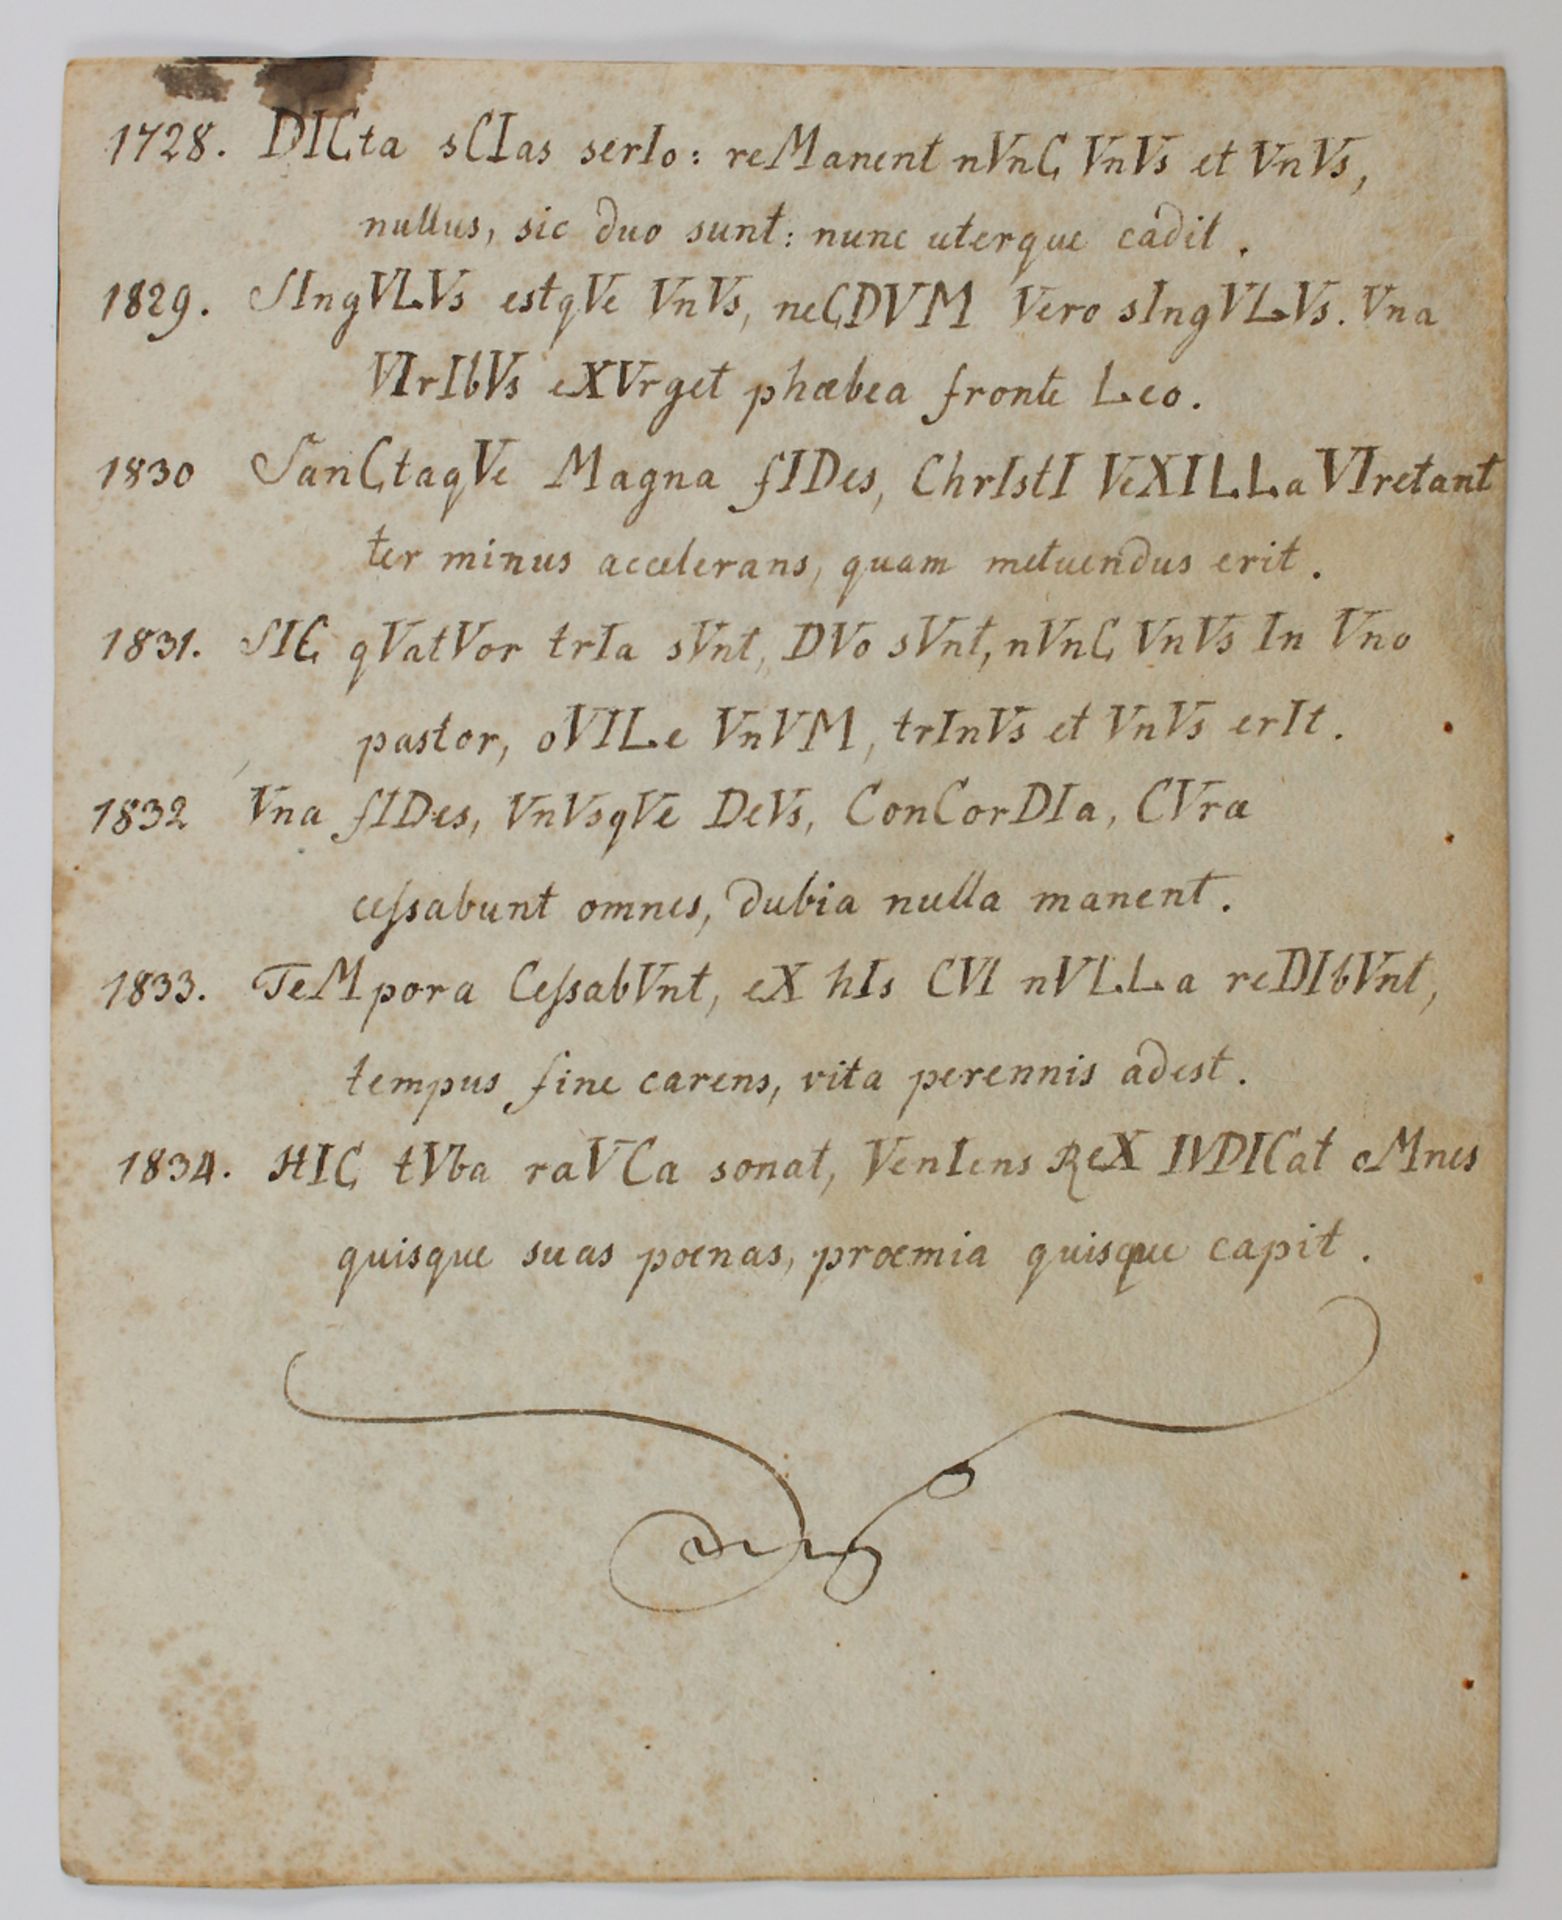 1728. DICta sCIas serIo: reManent nVnC VnVs et VnVs,
nullus, sic duo sunt: nunc uterque cadit.
1829. SIngVLVs estqVe VnVs, neCDVM Vero sIngVLVs. Vna
VIrIbVs eXVrget phæbea fronte Leo.
1830 SanCtaqVe Magna fIDes, ChrIstI VeXILLa VIretant
ter minus accelerans, quam metuendus erit.
1831. SIC qVatVor trIa sVnt, DVo sVnt, nVnC VnVs In Vno
pastor, oVILe VnVM, trInVs et VnVs erIt.
1832 Vna fIDes, VnVsqVe DeVs, ConCorDIa, CVræ
ceſsabunt omnes, dubia nulla manent.
1833. TeMpora CeſsabVnt, eX hIs CVI nVLLa reDIbVnt,
tempus fine carens, vita perennis adest.
1834. HIC tVba raVCa sonat, VenIens ReX IVDICat oMnes
quisque suas poenas, proemia quisque capit.